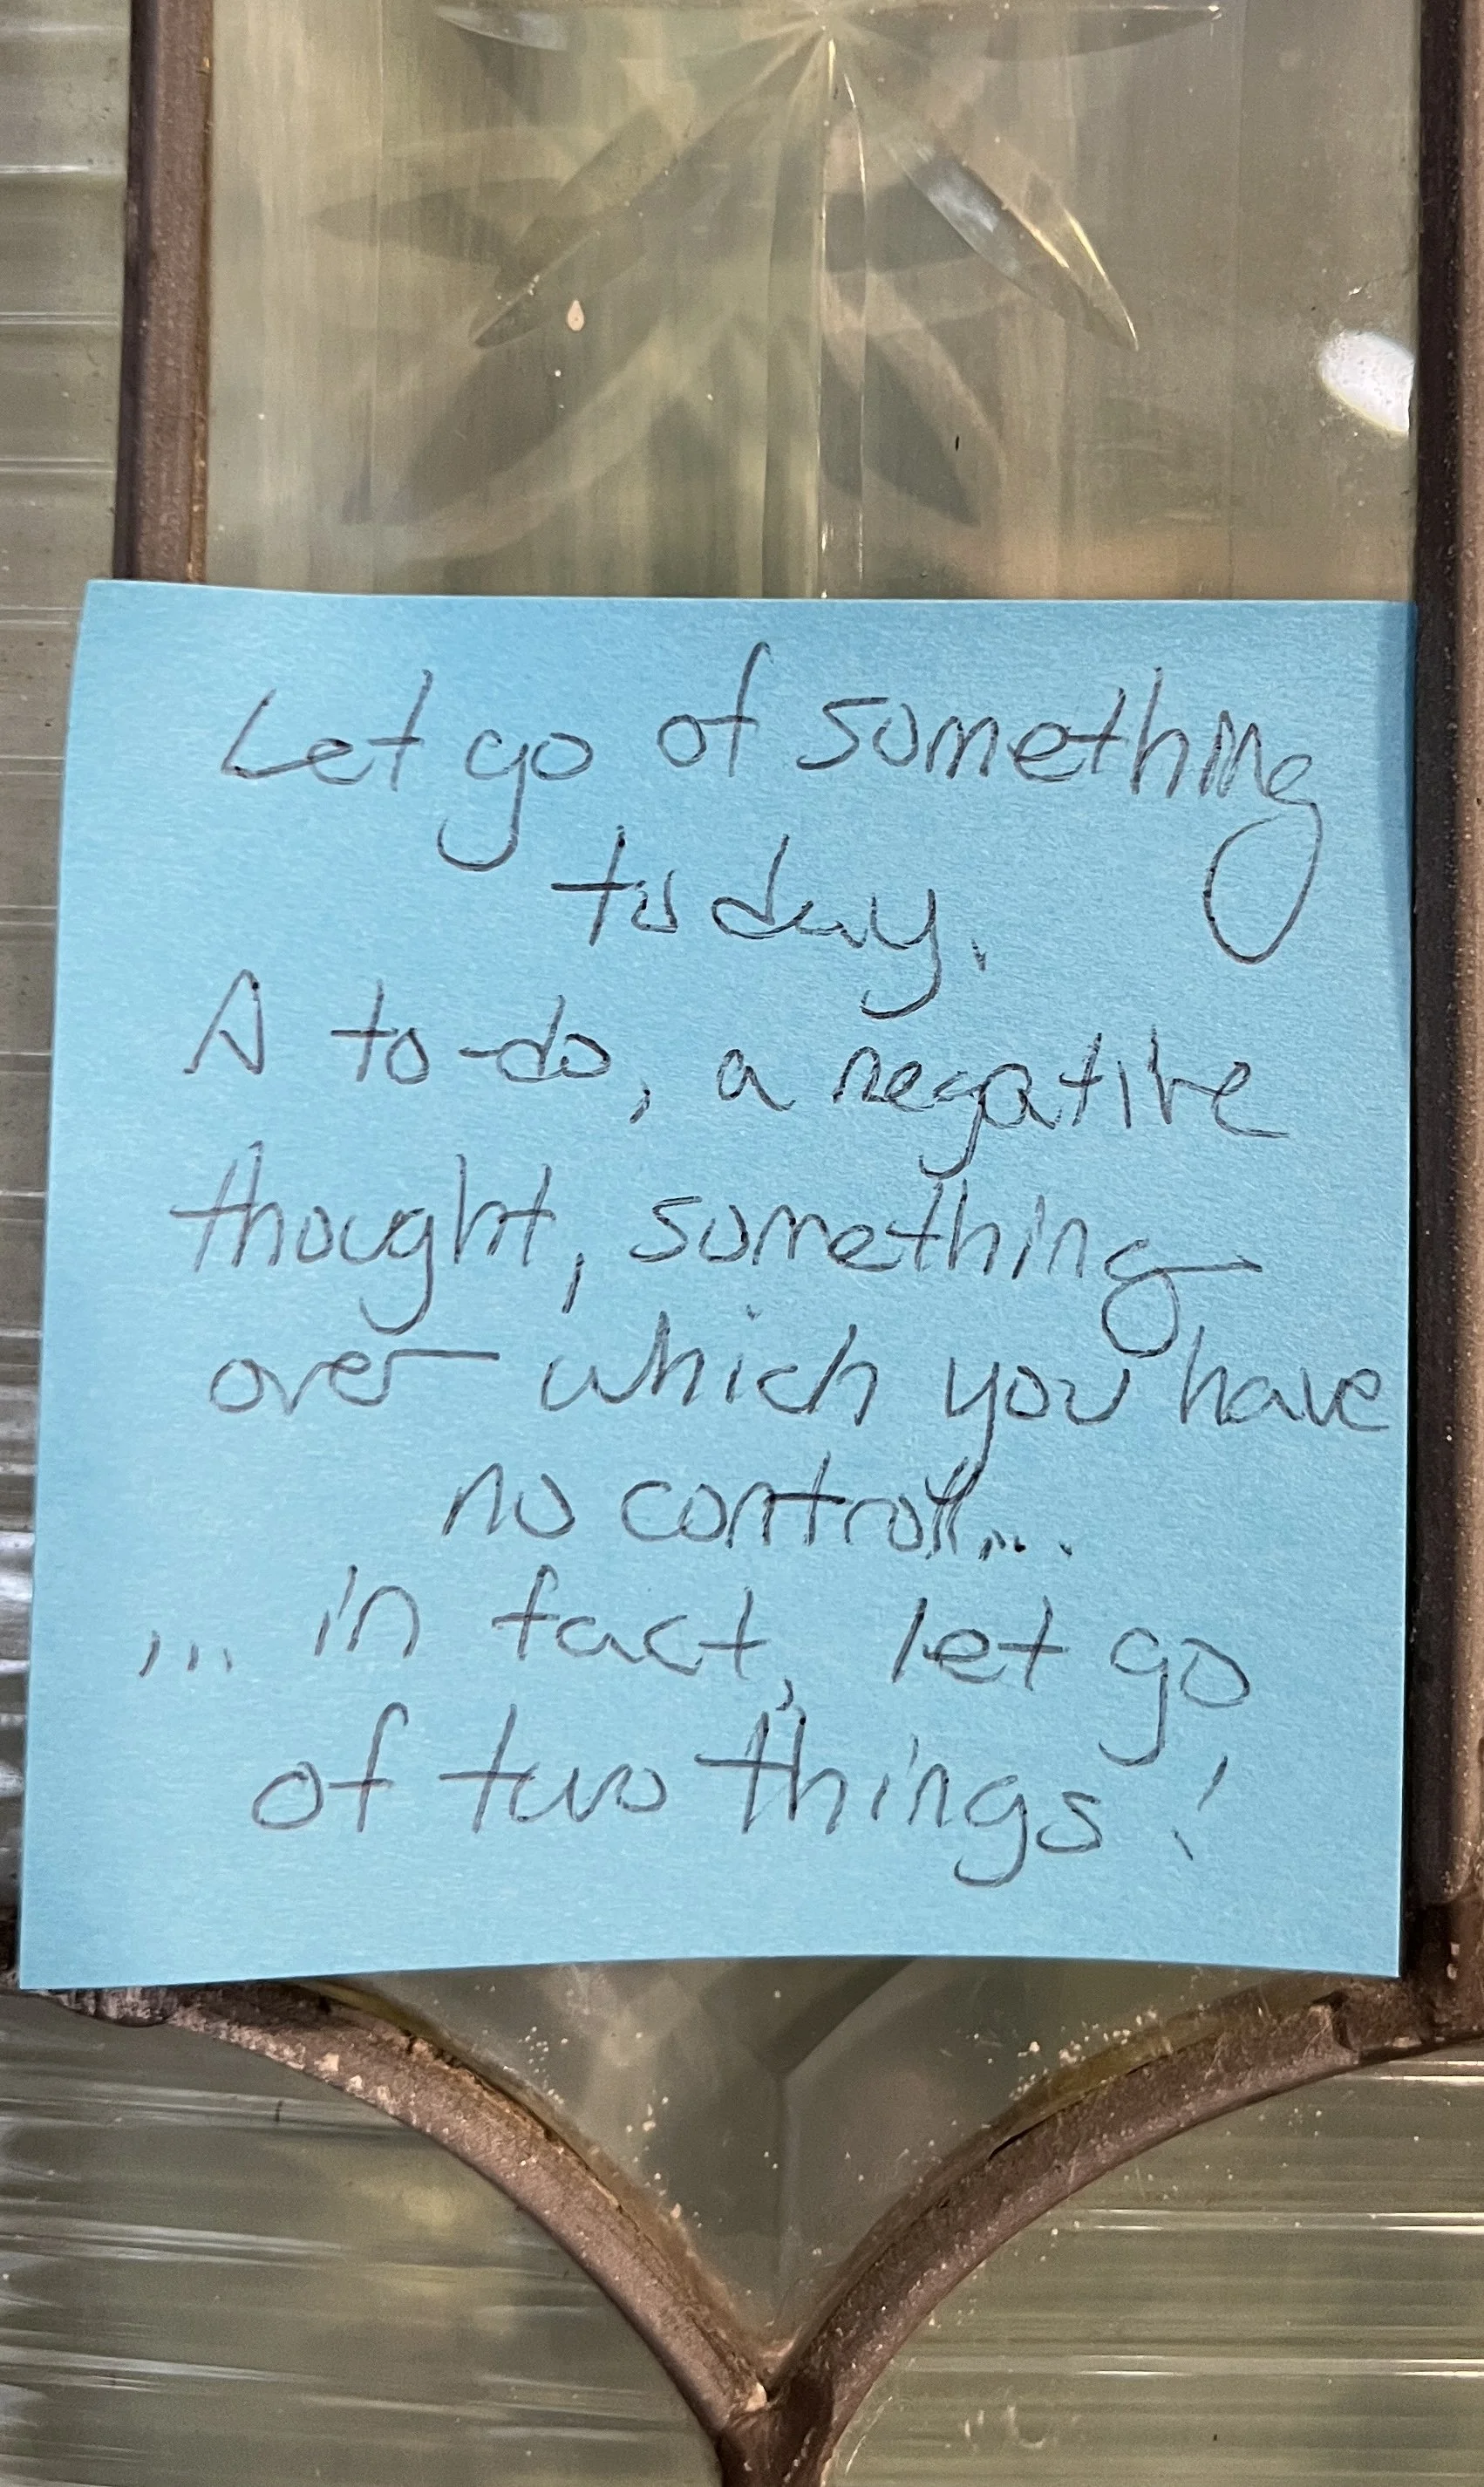 Let go of something
today.
A to-do, a negative
thought, something
over which you have
no control...
... in fact, let go
of two things!